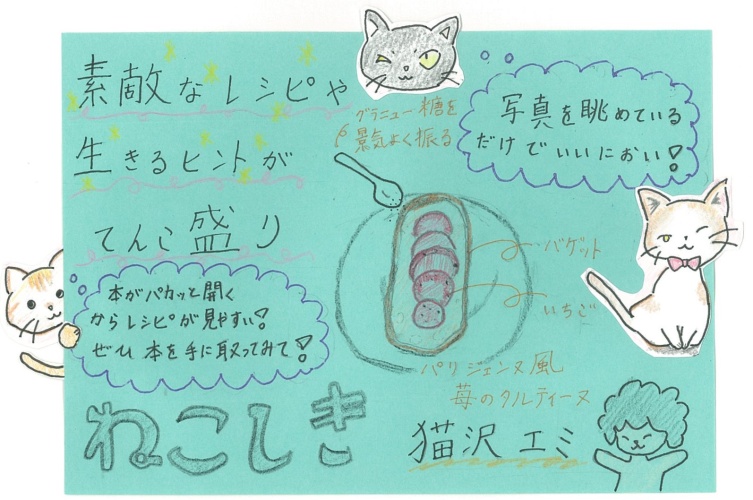 素敵なレシピや
生きるヒントが
てんこ盛り
グラニュー糖を
景気よく振る
写真を眺めている
だけでいいにおい!
バゲット
いちご
本がパカッと開く
からレシピが見やすい!
ぜひ本を手に取ってみて!
パリジェンヌ風
苺のタルティーヌ
ねこしき
猫沢エミ